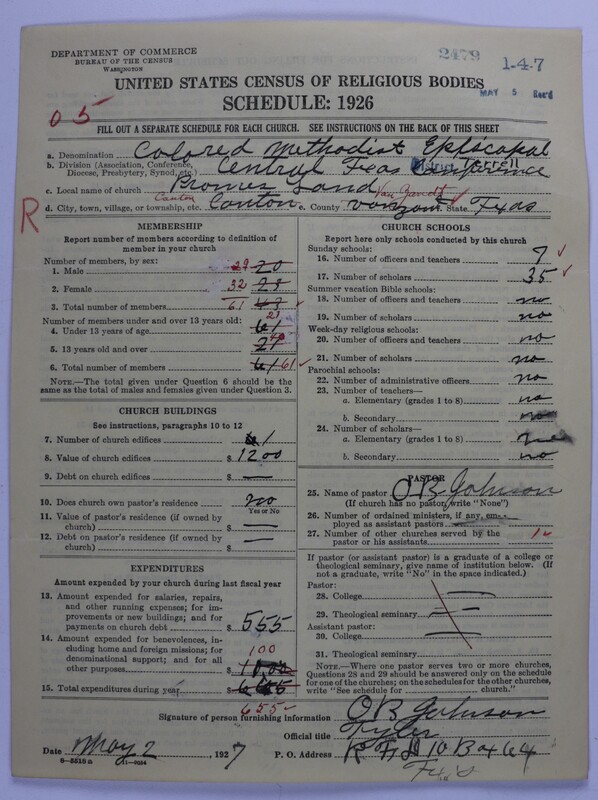 DEPARTMENT OF COMMERCE
BUREAU OF THE CENSUS
WASHINGTON
2479
1-4-7
UNITED STATES CENSUS OF RELIGIOUS BODIES
MAY 5 Rec'd
SCHEDULE: 1926
05
FILL OUT A SEPARATE SCHEDULE FOR EACH CHURCH. SEE INSTRUCTIONS ON THE BACK OF THIS SHEET
a. Denomination Colored Methodist Episcopal
District Terrell
b. Division (Association, Conference, Diocese, Presbytery, Synod, etc.) Central Texas Conference
c. Local name of church Promis Land
Canton Van Zandt
R
d. City, town, village, or township, etc. Canton e. County State Texas
MEMBERSHIP
Report number of members according to definition of member in your church
Number of members, by sex:
1. Male 29 20
2. Female 32 23
3. Total number of members 61 43
Number of members under and over 13 years old:
21
4. Under 13 years of age 61
40
5. 13 years old and over 21
6. Total number of members 61 61
NOTE.—The total given under Question 6 should be the same as the total of males and females given under Question 3.
CHURCH BUILDINGS
See instructions, paragraphs 10 to 12
7. Number of church edifices 1
8. Value of church edifices $ 1200
9. Debt on church edifices $ —
10. Does church own pastor's residence no
Yes or No
11. Value of pastor's residence (if owned by church) $ —
12. Debt on pastor's residence (if owned by church) $ —
EXPENDITURES
Amount expended by your church during last fiscal year
13. Amount expended for salaries, repairs, and other running expenses; for improvements or new buildings; and for payments on church debt $ 555
14. Amount expended for benevolences, including home and foreign missions; for denominational support; and for all other purposes 100
15. Total expenditures during year $
655
CHURCH SCHOOLS
Report here only schools conducted by this church
Sunday schools:
16. Number of officers and teachers 7
17. Number of scholars 35
Summer vacation Bible schools:
18. Number of officers and teachers no
19. Number of scholars no
Week-day religious schools:
20. Number of officers and teachers no
21. Number of scholars no
Parochial schools:
22. Number of administrative officers no
23. Number of teachers—
a. Elementary (grades 1 to 8) no
b. Secondary no
24. Number of scholars—
a. Elementary (grades 1 to 8) no
b. Secondary no
PASTOR
25. Name of pastor O B Johnson
(If church has no pastor, write "None")
26. Number of ordained ministers, if any, employed as assistant pastors
27. Number of other churches served by the pastor or his assistants
If pastor (or assistant pastor) is a graduate of a college or theological seminary, give name of institution below. (If not a graduate, write "No" in the space indicated.)
Pastor:
28. College —
29. Theological seminary —
Assistant pastor:
30. College —
31. Theological seminary
NOTE.—Where one pastor serves two or more churches, Questions 28 and 29 should be answered only on the schedule for one of the churches; on the schedules for the other churches, write "See schedule for church."
Signature of person furnishing information O B Johnson
Official title Tyler
Date May 2, 1927 P. O. Address R F D 10 Box 64
8-5518 a 11-9034
Texs